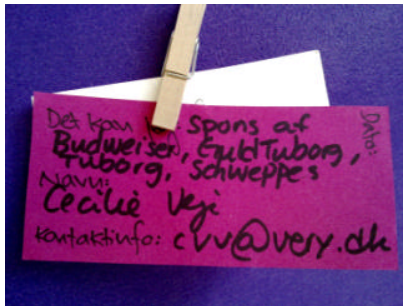 Det kan Spons af
Budweiser, GuldTuborg,
Tuborg, Schweppes
Navn:
Cecilie Veje
Kontaktinfo: cvv@very.dk
Dato: